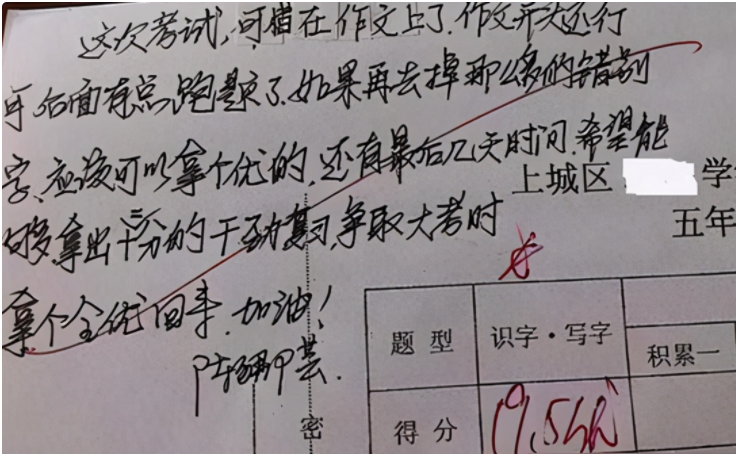 这次考试,可惜在作文上了.作文开头还行
可后面有点跑题了.如果再去掉那么多的错别
字、应该可以拿个优的.还有最后几天时间.希望能
够拿出十二分的干劲复习,争取大考时
拿个全优回来.加油!
上城区 学
五年
题 型 识字·写字 积累一
得 分 19.5
密